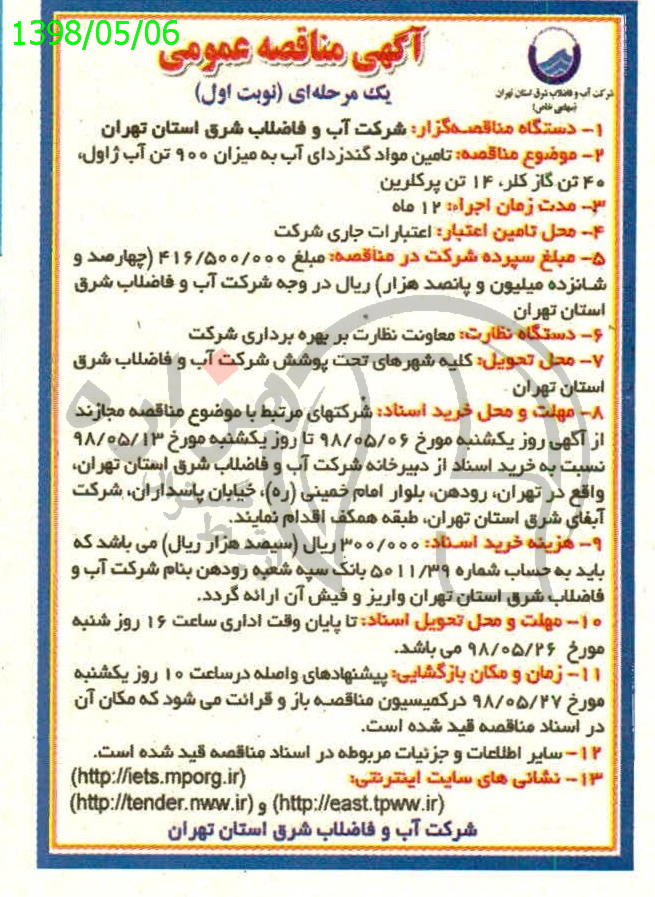 1398/05/06
آگهی مناقصه عمومی
یک مرحله‌ای (نوبت اول)
شرکت آب و فاضلاب شرق استان تهران
(سهامی خاص)
۱- دستگاه مناقصه‌گزار: شرکت آب و فاضلاب شرق استان تهران
۲- موضوع مناقصه: تامین مواد گندزدای آب به میزان ۹۰۰ تن آب ژاول،
۴۰ تن گاز کلر، ۱۴ تن پرکلرین
۳- مدت زمان اجراء: ۱۲ ماه
۴- محل تامین اعتبار: اعتبارات جاری شرکت
۵- مبلغ سپرده شرکت در مناقصه: مبلغ ۴۱۶/۵۰۰/۰۰۰ (چهارصد و
شانزده میلیون و پانصد هزار) ریال در وجه شرکت آب و فاضلاب شرق
استان تهران
۶- دستگاه نظارت: معاونت نظارت بر بهره برداری شرکت
۷- محل تحویل: کلیه شهرهای تحت پوشش شرکت آب و فاضلاب شرق
استان تهران
۸- مهلت و محل خرید اسناد: شرکتهای مرتبط با موضوع مناقصه مجازند
از آگهی روز یکشنبه مورخ ۹۸/۰۵/۰۶ تا روز یکشنبه مورخ ۹۸/۰۵/۱۳
نسبت به خرید اسناد از دبیرخانه شرکت آب و فاضلاب شرق استان تهران،
واقع در تهران، رودهن، بلوار امام خمینی (ره)، خیابان پاسداران، شرکت
آبفای شرق استان تهران، طبقه همکف اقدام نمایند.
۹- هزینه خرید اسناد: ۳۰۰/۰۰۰ ریال (سیصد هزار ریال) می باشد که
باید به حساب شماره ۵۰۱۱/۳۹ بانک سپه شعبه رودهن بنام شرکت آب و
فاضلاب شرق استان تهران واریز و فیش آن ارائه گردد.
۱۰- مهلت و محل تحویل اسناد: تا پایان وقت اداری ساعت ۱۶ روز شنبه
مورخ ۹۸/۰۵/۲۶ می باشد.
۱۱- زمان و مکان بازگشایی: پیشنهادهای واصله درساعت ۱۰ روز یکشنبه
مورخ ۹۸/۰۵/۲۷ درکمیسیون مناقصه باز و قرائت می شود که مکان آن
در اسناد مناقصه قید شده است.
۱۲- سایر اطلاعات و جزئیات مربوطه در اسناد مناقصه قید شده است.
۱۳- نشانی های سایت اینترنتی: (http://iets.mporg.ir)
(http://east.tpww.ir) و (http://tender.nww.ir)
شرکت آب و فاضلاب شرق استان تهران